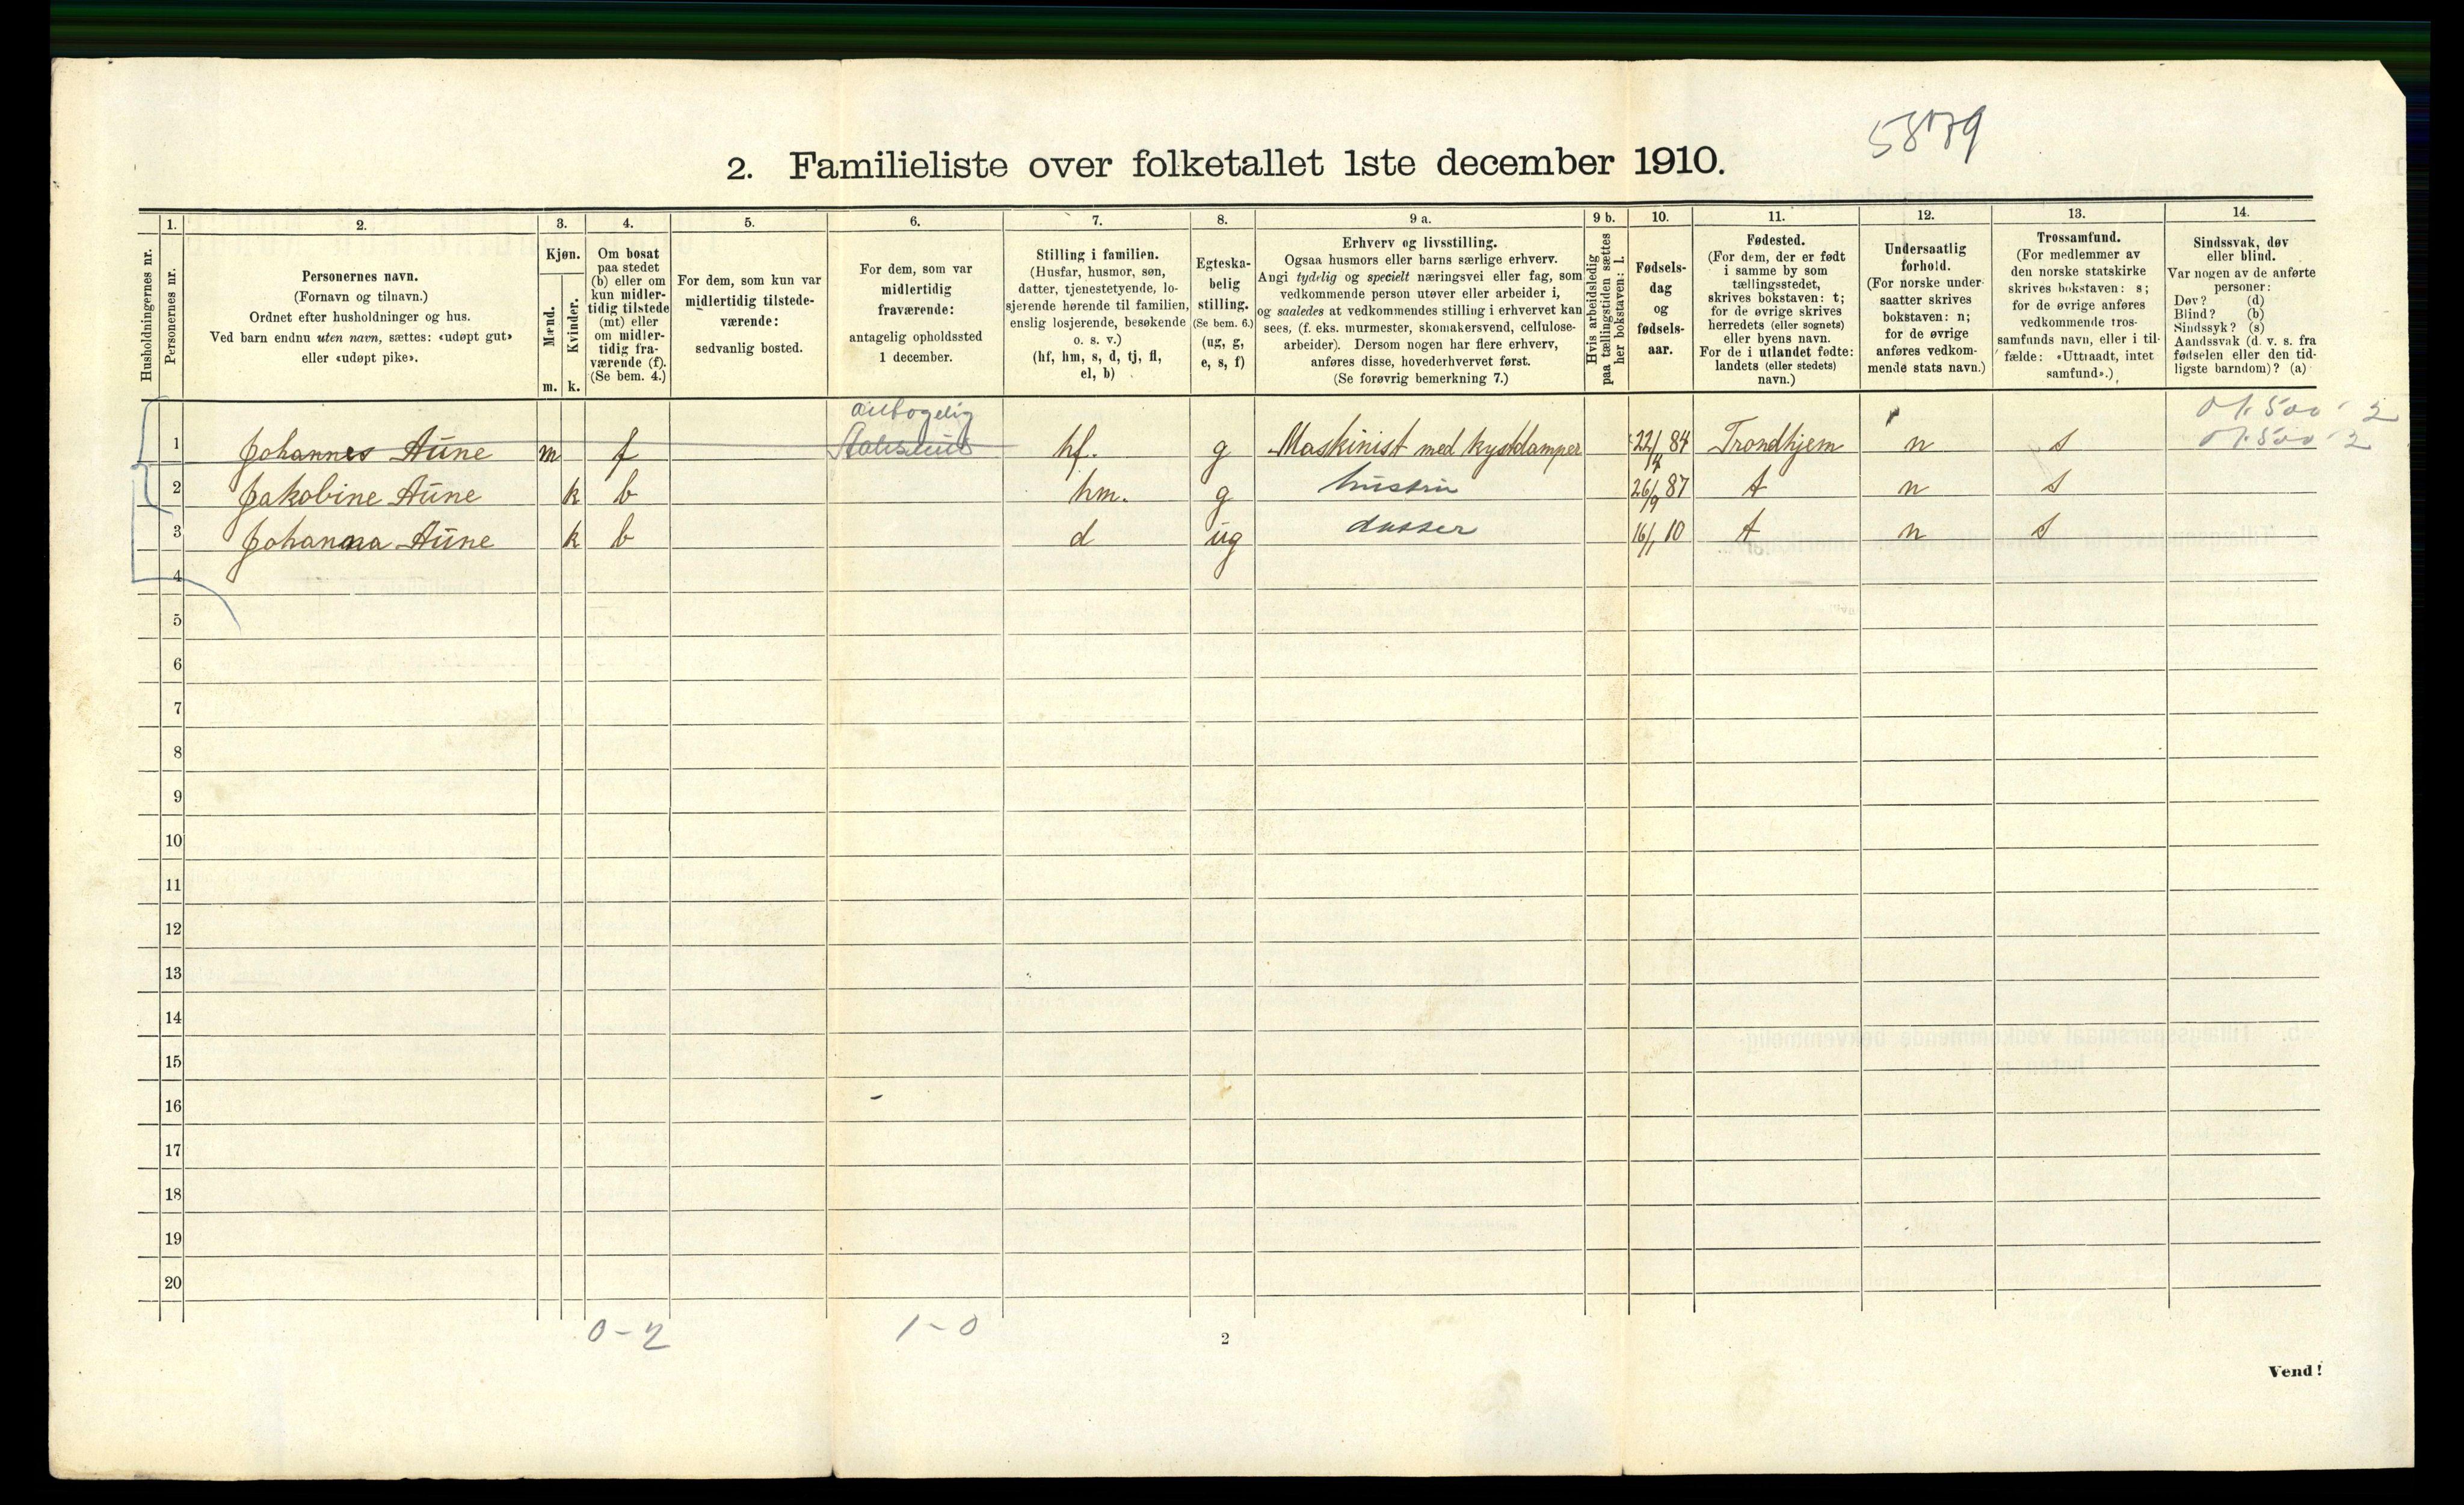 5879
2. Familieliste over folketallet 1ste december 1910.
Husholdningernes nr.
1. Personernes nr.
2. Personernes navn.
(Fornavn og tilnavn.)
Ordnet efter husholdninger og hus.
Ved barn endnu uten navn, sættes: «udøpt gut»
eller «udøpt pike».
3. Kjøn.
Mænd. m.
Kvinder. k.
4. Om bosat
paa stedet
(b) eller om
kun midler-
tidig tilstede
(mt) eller
om midler-
tidig fra-
værende (f).
(Se bem. 4.)
5. For dem, som kun var
midlertidig tilstede-
værende:
sedvanlig bosted.
6. For dem, som var
midlertidig
fraværende:
antagelig opholdssted
1 december.
7. Stilling i familien.
(Husfar, husmor, søn,
datter, tjenestetyende, lo-
sjerende hørende til familien,
enslig losjerende, besøkende
o. s. v.)
(hf, hm, s, d, tj, fl,
el, b)
8. Egteska-
belig
stilling.
(Se bem. 6.)
(ug, g,
e, s, f)
9 a. Erhverv og livsstilling.
Ogsaa husmors eller barns særlige erhverv.
Angi tydelig og specielt næringsvei eller fag, som
vedkommende person utøver eller arbeider i,
og saaledes at vedkommendes stilling i erhvervet kan
sees, (f. eks. murmester, skomakersvend, cellulose-
arbeider). Dersom nogen har flere erhverv,
anføres disse, hovederhvervet først.
(Se forøvrig bemerkning 7.)
9 b. Hvis arbeidsledig
paa tællingstiden sættes
her bokstaven: l.
10. Fødsels-
dag
og
fødsels-
aar.
11. Fødested.
(For dem, der er født
i samme by som
tællingsstedet,
skrives bokstaven: t;
for de øvrige skrives
herredets (eller sognets)
eller byens navn.
For de i utlandet fødte:
landets (eller stedets)
navn.)
12. Undersaatlig
forhold.
(For norske under-
saatter skrives
bokstaven: n;
for de øvrige
anføres vedkom-
mende stats navn.)
13. Trossamfund.
(For medlemmer av
den norske statskirke
skrives bokstaven: s;
for de øvrige anføres
vedkommende tros-
samfunds navn, eller i til-
fælde: «Uttraadt, intet
samfund».)
14. Sindssvak, døv
eller blind.
Var nogen av de anførte
personer:
Døv? (d)
Blind? (b)
Sindssyk? (s)
Aandssvak (d. v. s. fra
fødselen eller den tid-
ligste barndom)? (a)
1 Johannes Aune m f hf. g Maskinist med kystdamper 22/4 84 Trondhjem n s
2 Jakobine Aune k b hm. g hustru 26/9 87 t n s
3 Johanna Aune k b d ug datter 16/1 10 t n s
4
5
6
7
8
9
10
11
12
13
14
15
16
17
18
19
20
0-2 1-0
2
Vend!